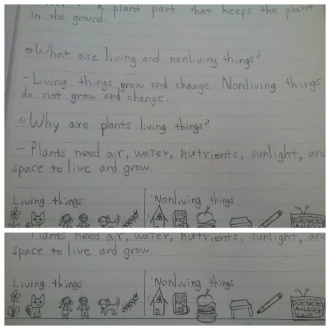 a plant part that keeps the plant
in the ground.
What are living and nonliving things?
- Living things grow and change. Nonliving things
do not grow and change.
Why are plants living things?
- Plants need air, water, nutrients, sunlight, and
space to live and grow.
Living things Nonliving things
Plants need air, water, nutrients, sunlight, an
space to live and grow.
Living things Nonliving things